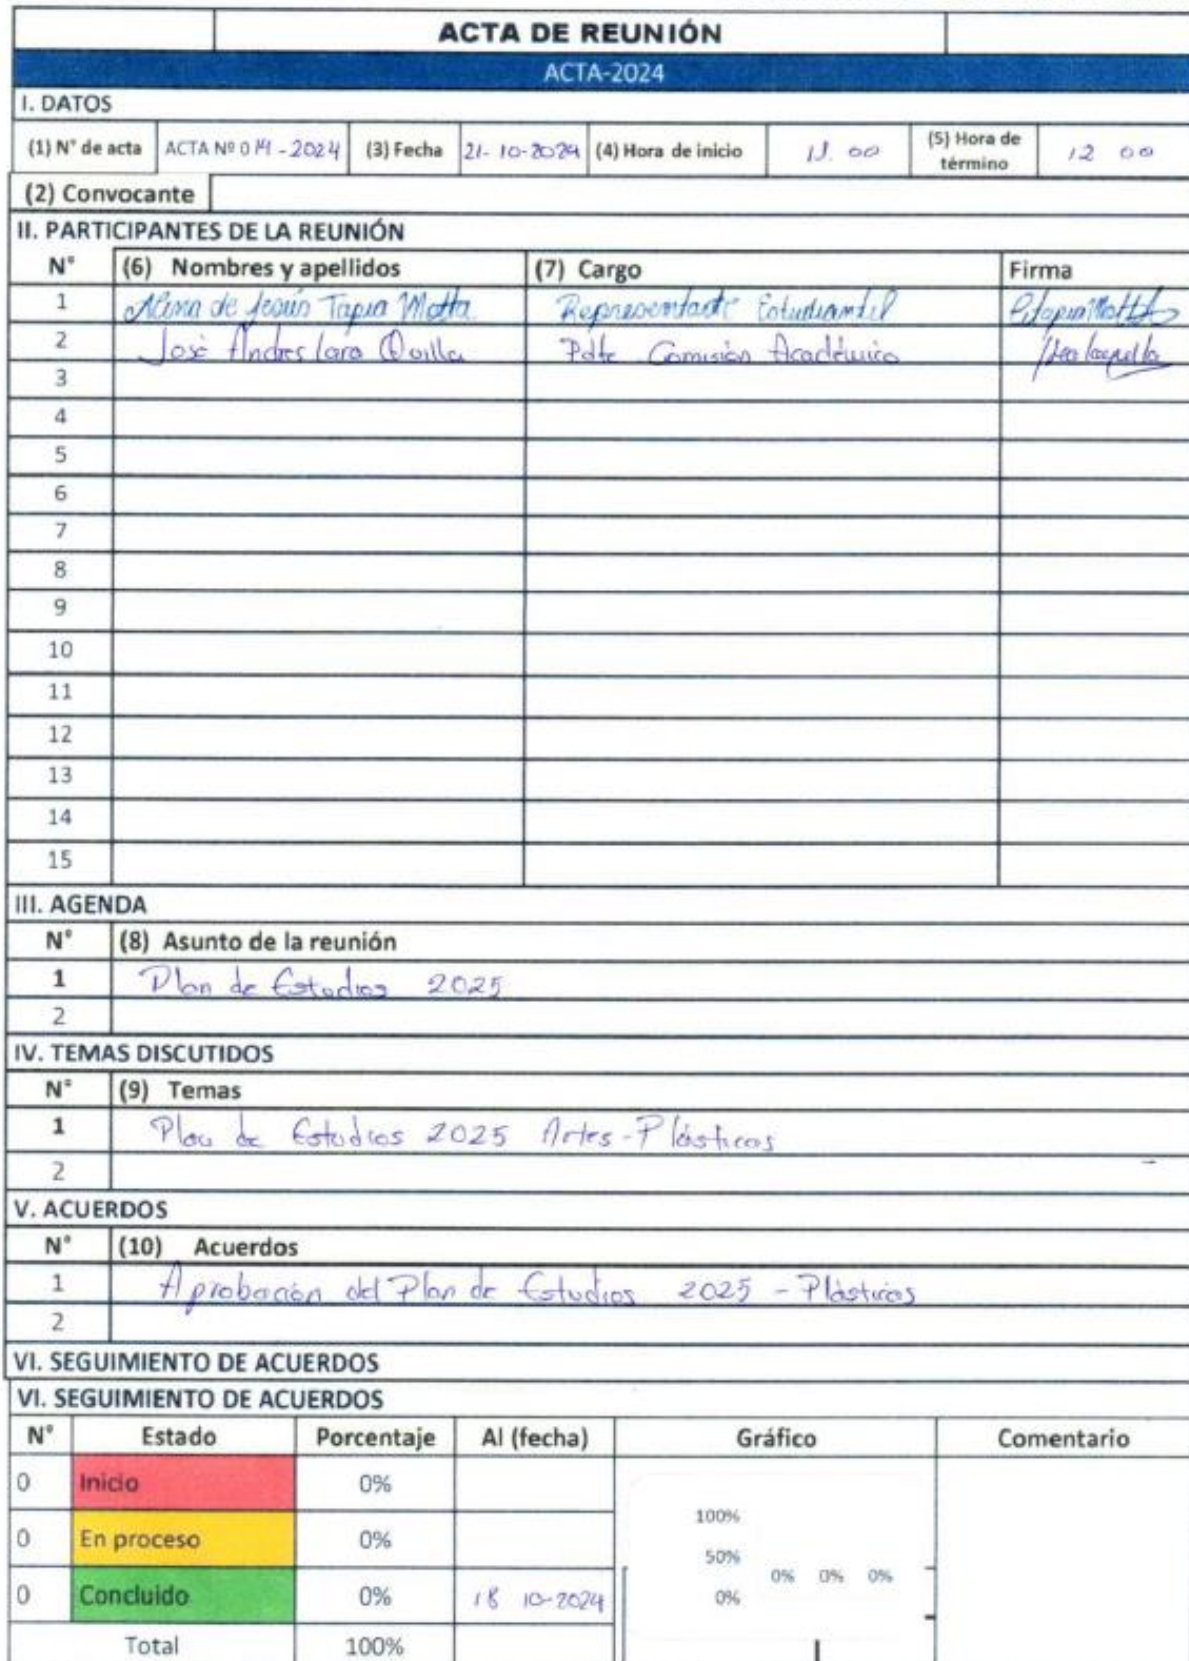 ACTA DE REUNIÓN
ACTA-2024
I. DATOS
(1) N° de acta ACTA Nº 014-2024 (3) Fecha 21-10-2024 (4) Hora de inicio 11.00 (5) Hora de término 12 00
(2) Convocante
II. PARTICIPANTES DE LA REUNIÓN
N° (6) Nombres y apellidos (7) Cargo Firma
1 de Jesús Tapia Motta Representante Estudiantil
2 José Andres Lara Pdte Comisión Académica
3
4
5
6
7
8
9
10
11
12
13
14
15
III. AGENDA
N° (8) Asunto de la reunión
1 Plan de Estudios 2025
2
IV. TEMAS DISCUTIDOS
N° (9) Temas
1 Plan de Estudios 2025 Artes-Plásticas
2
V. ACUERDOS
N° (10) Acuerdos
1 Aprobación del Plan de Estudios 2025 - Plásticas
2
VI. SEGUIMIENTO DE ACUERDOS
VI. SEGUIMIENTO DE ACUERDOS
N° Estado Porcentaje Al (fecha) Gráfico Comentario
0 Inicio 0%
0 En proceso 0%
0 Concluido 0% 18 10-2024
Total 100%
100%
50%
0%
0% 0% 0%